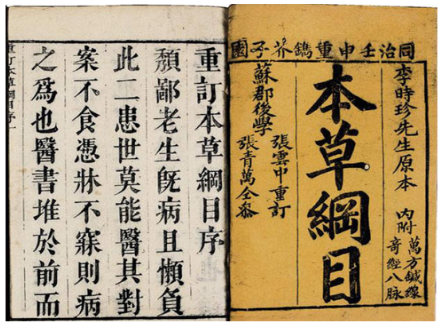 同治壬申重鐫芥子園
李時珍先生原本
內附萬方鍼線
奇經八脉
本草綱目
張雲中重訂
張青萬仝參
蘇郡後學
重訂本草綱目序
頹鄙老生旣病且懶負
此二患世莫能醫其對
案不食憑牀不寐則病
之爲也醫書堆於前而
重訂本草綱目序